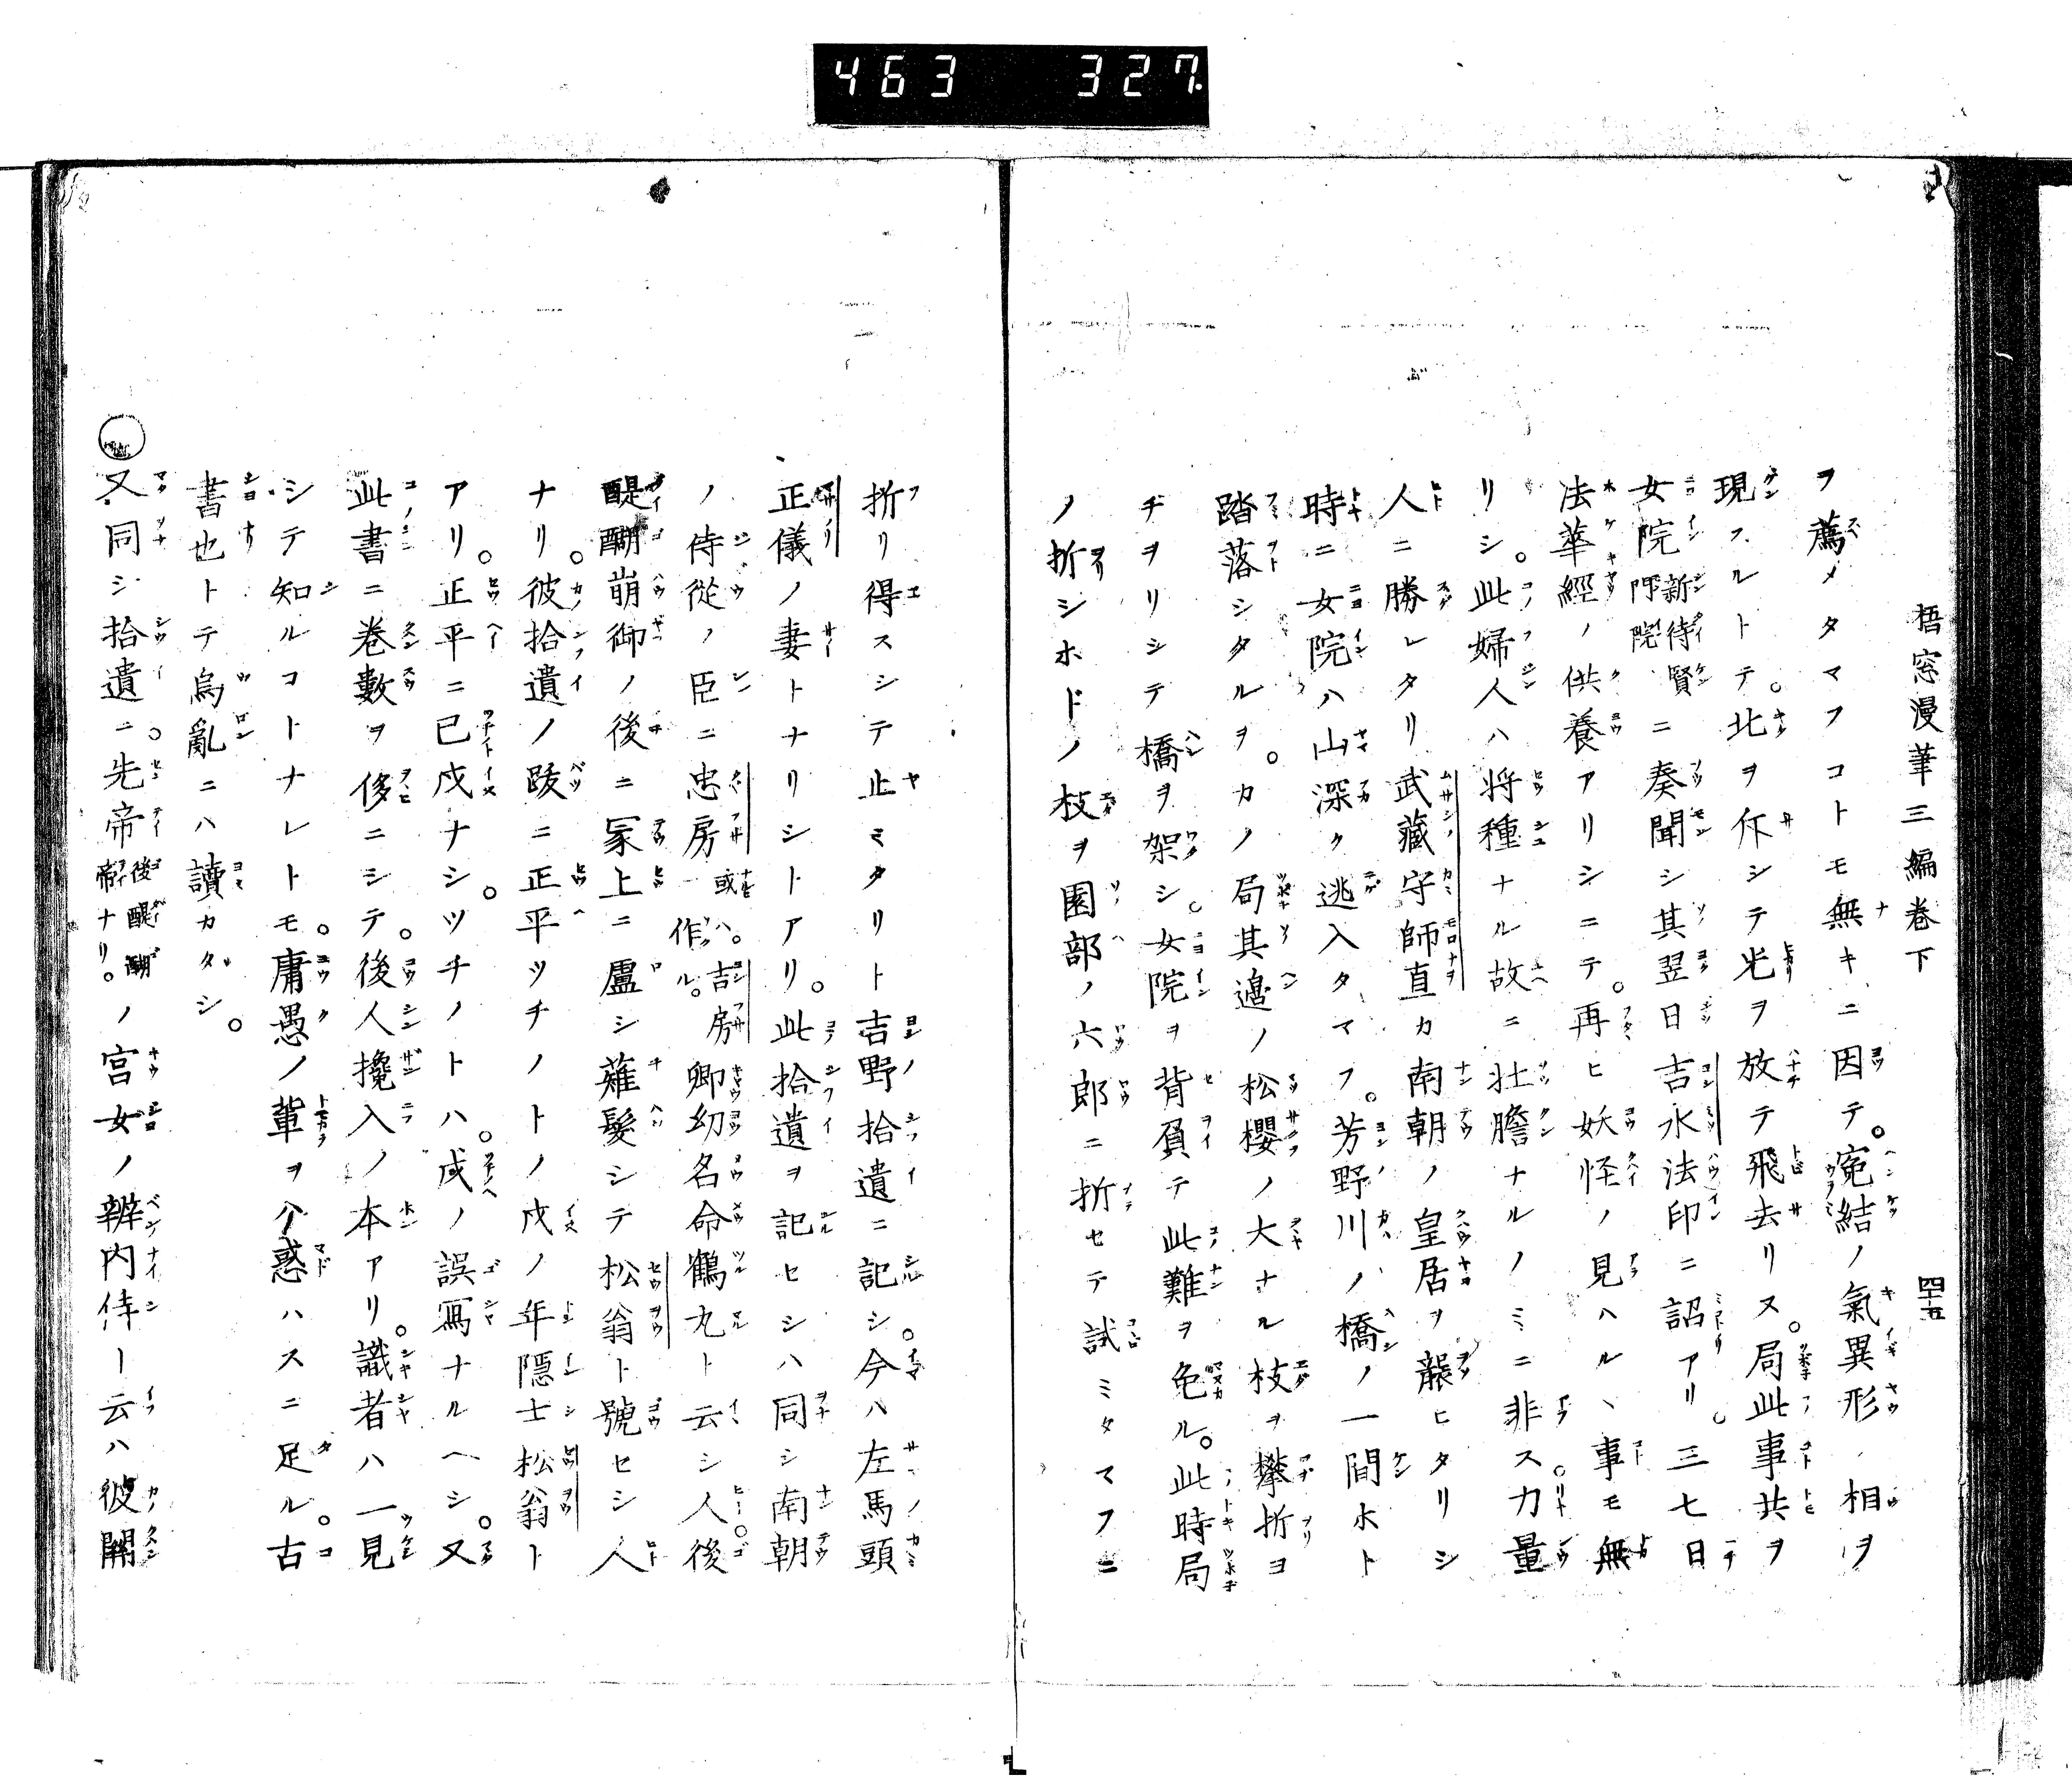 463 327
梧窓漫筆三編巻下 四十五
ヲ薦メタマフコトモ無キニ因テ。寃結ノ氣異形ノ相ヲ
現スルトテ。北ヲ㑅シテ光ヲ放テ飛去リヌ。局此事共ヲ
女院新待賢門院ニ奏聞シ其翌日吉水法印ニ詔アリ。三七日
法華經ノ供養アリシニテ。再ヒ妖怪ノ見ハルヽ事モ無
リシ。此婦人ハ将種ナル故ニ壮膽ナルノミニ非ス。力量
人ニ勝レタリ武藏守師直カ南朝ノ皇居ヲ襲ヒタリシ
時ニ女院ハ山深ク逃入タマフ。芳野川ノ橋ノ一間ホト
踏落シタルヲ。カノ局其邉ノ松櫻ノ大ナル枝ヲ攀折ヨ
チヲリシテ橋ヲ架シ。女院ヲ背負テ此難ヲ免ル。此時局
ノ折シホドノ枝ヲ園部ノ六郎ニ折セテ試ミタマフニ
折リ得スシテ止ミタリト吉野拾遺ニ記シ。今ハ左馬頭
正儀ノ妻トナリシトアリ。此拾遺ヲ記セシハ同シ南朝
ノ侍從ノ臣ニ忠房一或ハ。吉房作ル。卿幼名命鶴丸ト云シ人後
醍醐崩御ノ後ニ冢上ニ盧シ薙髮シテ松翁ト號セシ人
ナリ。彼拾遺ノ跋ニ正平ツチノトノ戌ノ年隠士松翁ト
アリ。正平ニ已戌ナシ。ツチノトハ。戊ノ誤寫ナルヘシ。又
此書ニ巻數ヲ侈ニシテ。後人攙入ノ本アリ。識者ハ一見
シテ知ルコトナレトモ。庸愚ノ輩ヲ惑ハスニ足ル。古
書也トテ烏亂ニハ讀カタシ。
又同シ拾遺ニ。先帝後醍醐帝ナリ。ノ宮女ノ辨内侍ト云ハ彼關